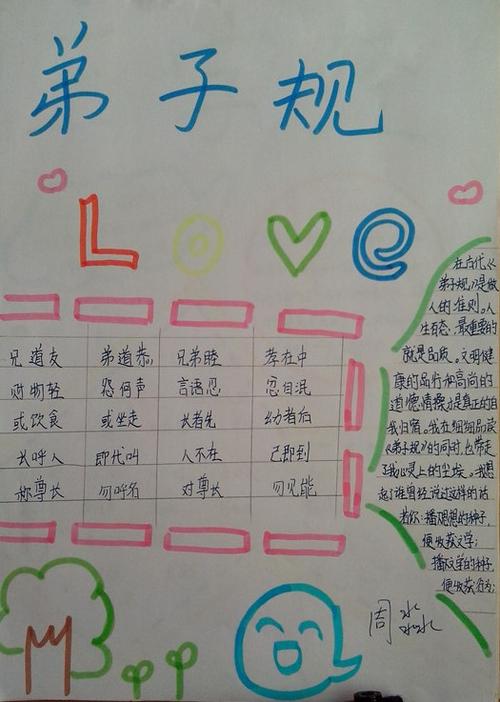 弟子规
LOVe
兄道友 弟道恭 兄弟睦 孝在中
财物轻 怨何声 言语忍 忿自泯
或饮食 或坐走 长者先 幼者后
长呼人 即代叫 人不在 己即到
称尊长 勿呼名 对尊长 勿见能
在古代《
弟子规》是做
人的准则。人
生在世,最重要的
就是品质。只有健
康的品行和高尚的
道德情操才是真正的自
我归宿。我在细细品读
《弟子规》的同时,也带走
了我心灵上的尘埃。我想
起了谁曾经说过这样的话
若你:播思想的种子,
便收获文学;
播文学的种子,
便收获行为;
周淼